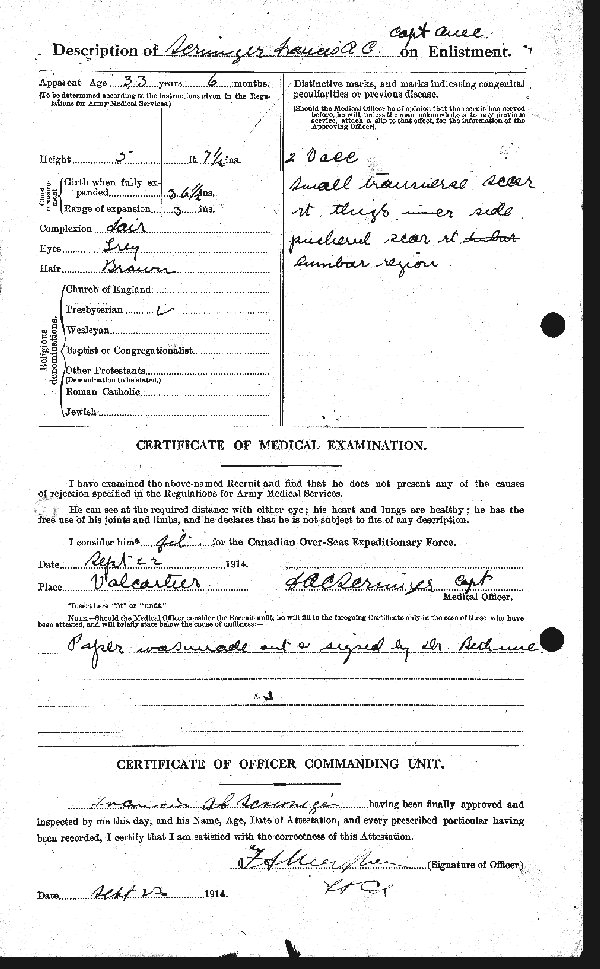 Capt
Description of Scrimger Francis A. C. on Enlistment.
Apparent Age 33 years 6 months.
(To be determined according to the instructions given in the Regulations for Army Medical Services.)
Height 5 ft. 7½ ins.
Chest measurement
Girth when fully expanded 36½ ins.
Range of expansion 3 ins.
Complexion Fair
Eyes Grey
Hair Brown
Religious denominations.
Church of England
Presbyterian
Wesleyan
Baptist or Congregationalist
Other Protestants
(Denomination to be stated.)
Roman Catholic
Jewish
Distinctive marks, and marks indicating congenital
peculiarities or previous disease.
(Should the Medical Officer be of opinion that the recruit has served
before, he will, unless the man acknowledges to any previous
service, attach a slip to that effect, for the information of the
Approving Officer).
2 Vacc
Small transverse scar
rt thigh inner side
puckered scar rt lumbar
lumbar region
CERTIFICATE OF MEDICAL EXAMINATION.
I have examined the above-named Recruit and find that he does not present any of the causes
of rejection specified in the Regulations for Army Medical Services.
He can see at the required distance with either eye; his heart and lungs are healthy; he has the
free use of his joints and limbs, and he declares that he is not subject to fits of any description.
I consider him* fit for the Canadian Over-Seas Expeditionary Force.
Date Sept 22 1914.
Place Valcartier FACScrimger Capt
Medical Officer.
*Insert here "fit" or "unfit."
NOTE.—Should the Medical Officer consider the Recruit unfit, he will fill in the foregoing Certificate only in the case of those who have
been attested, and will briefly state below the cause of unfitness:—
Paper was made out & signed by Dr. Bethune
CERTIFICATE OF OFFICER COMMANDING UNIT.
Francis AC Scrimger having been finally approved and
inspected by me this day, and his Name, Age, Date of Attestation, and every prescribed particular having
been recorded, I certify that I am satisfied with the correctness of this Attestation.
(Signature of Officer)
Lt Col
Date Sept 22 1914.